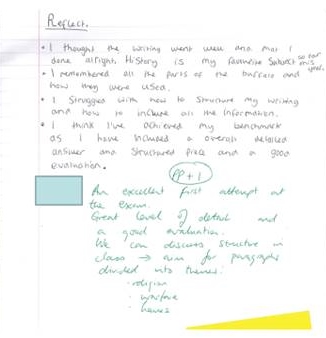 Reflect.
• I thought the writing went well and that I
done alright. History is my favourite subject so far this year.
• I remembered all the parts of the buffalo and
how they were used.
• I struggled with how to structure my writing
and how to include all the information.
• I think I've achieved my benchmark
as I have included a overall detailed
answer and structured piece and a good
evaluation.
PP+1
An excellent first attempt at
the exam.
Great level of detail and
a good evaluation.
We can discuss structure in
class → aim for paragraphs
divided into themes:
- religion
- warfare
- homes